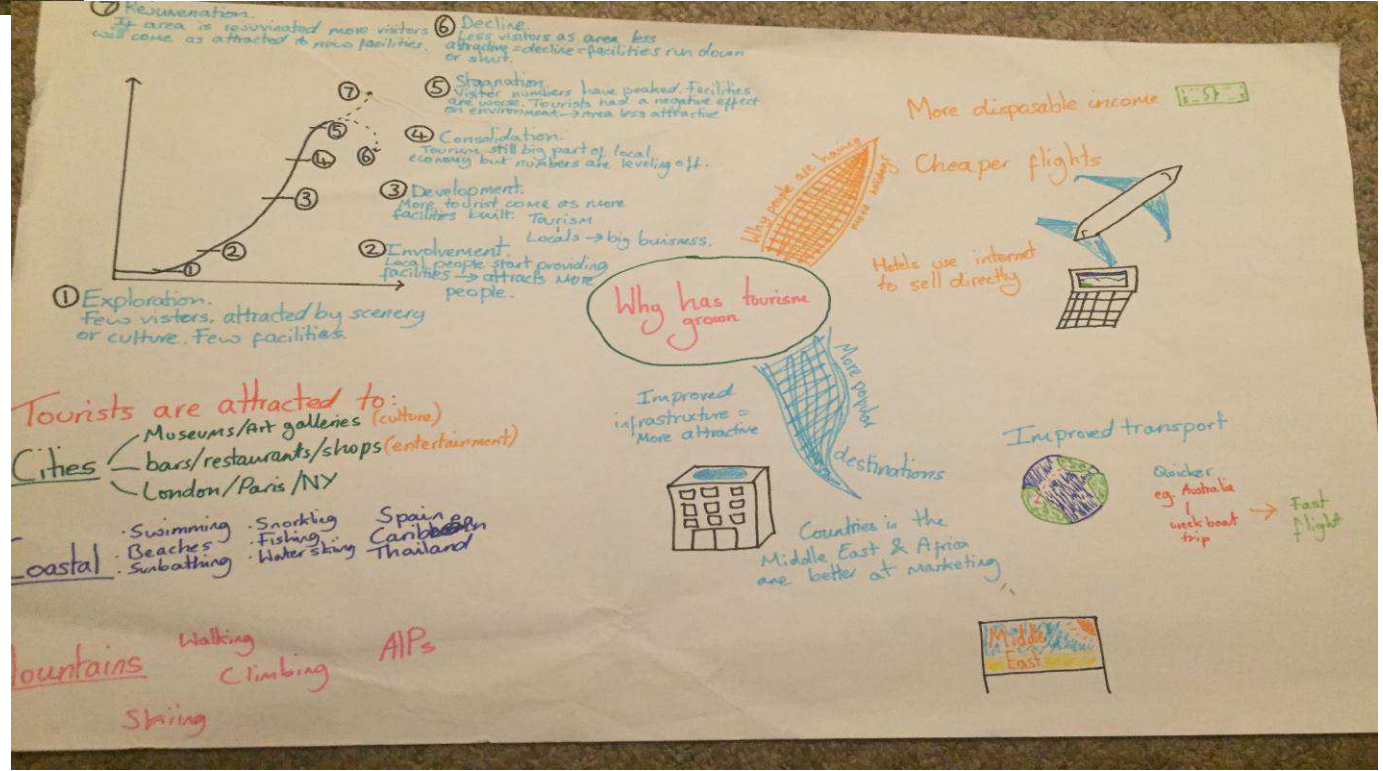 ⑦ Rejuvenation.
If area is rejuvinated more visitors
will come as attracted to new facilities.
⑥ Decline.
Less visitors as area less
attractive = decline = facilities run down
or shut.
⑤ Stagnation.
Visitor numbers have peaked. Facilities
are worse. Tourists had a negative effect
on environment → Area less attractive.
④ Consolidation.
Tourism still big part of local
economy but numbers are leveling off.
③ Development.
More todrist come as more
facilities built. Tourism
Locals → big buisness.
② Involvement.
Local people start providing
facilities → attracts more
people.
⑦
⑤
④
⑥
③
②
①
① Exploration.
Few visters, attracted by scenery
or culture. Few facilities.
Tourists are attracted to:
Cities
Museums/Art galleries (culture)
bars/restaurants/shops (entertainment)
London/Paris/NY
Coastal
· Swimming
· Beaches
· Sunbathing
· Snorkling
· Fishing
· Water skiing
Spain
Caribbean
Thailand
Mountains
Walking
Climbing
Skiing
AlPs
Why has tourism
grown
Why people are having
more holidays
More disposable income
Cheaper flights
Hotels use internet
to sell directly
More popular
destinations
Improved
infrastructure =
More attractive
Countries in the
Middle East & Africa
are better at marketing
Improved transport
Quicker
eg. Australia
week boat
trip
→ Fast
flight
Middle
East